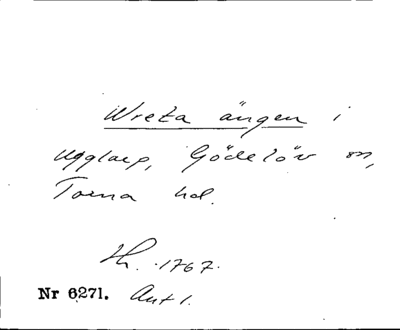 Wreta ängen i
Ugglarp, Gödelöv sn,
Torna hd.
Hh. 1767.
Nr 6271. Aut 1.